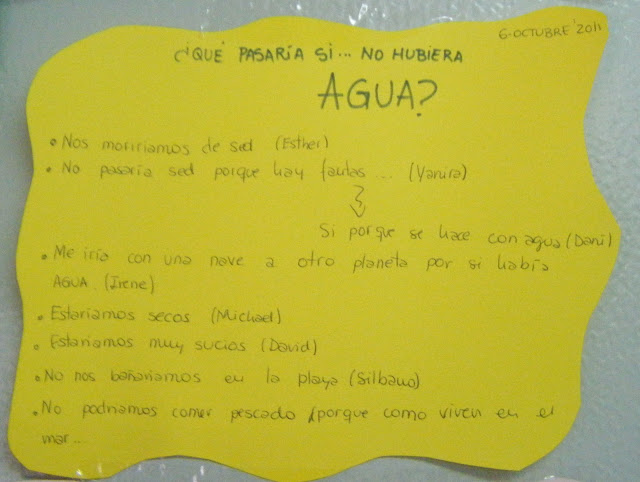 6-OCTUBRE'2011
¿QUÉ PASARÍA SI... NO HUBIERA
AGUA?
• Nos moriríamos de sed (Esther)
• No pasaría sed porque hay fantas ... (Yanira)
Si porque se hace con agua (Dani)
• Me iría con una nave a otro planeta por si había
AGUA. (Irene)
• Estaríamos secos (Michael)
• Estaríamos muy sucios (David)
• No nos bañaríamos en la playa (Silbano)
• No podríamos comer pescado porque como viven en el
mar...